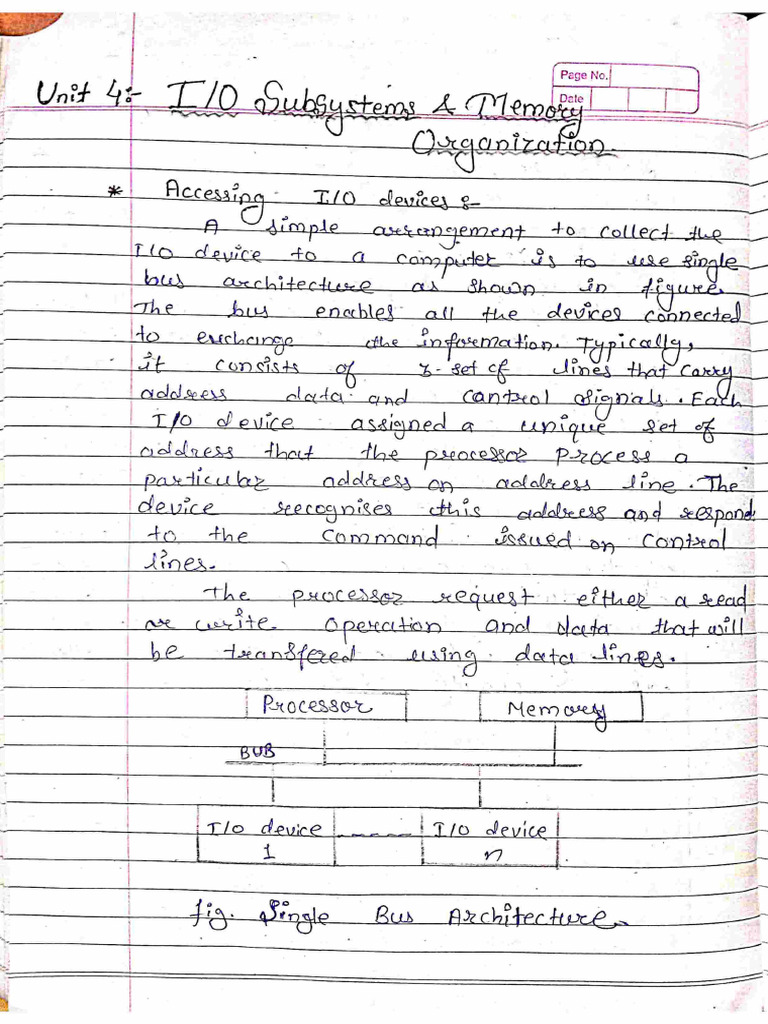 Page No.
Date
Unit 4:- I/O Subsystems & Memory
Organization.
* Accessing I/O devices :-
A simple arrangement to collect the
I/O device to a computer is to use single
bus architecture as shown in figure.
The bus enables all the devices connected
to exchange the information. Typically,
it consists of 3-set of lines that carry
address data and control signals. Each
I/O device assigned a unique set of
address that the processor process a
particular address on address line. The
device recognises this address and respond
to the command issued on control
lines.
The processor request either a read
or write operation and data that will
be transfered using data lines.
Processor Memory
BUB
I/O device ----- I/O device
1 n
fig. Single Bus Architecture.